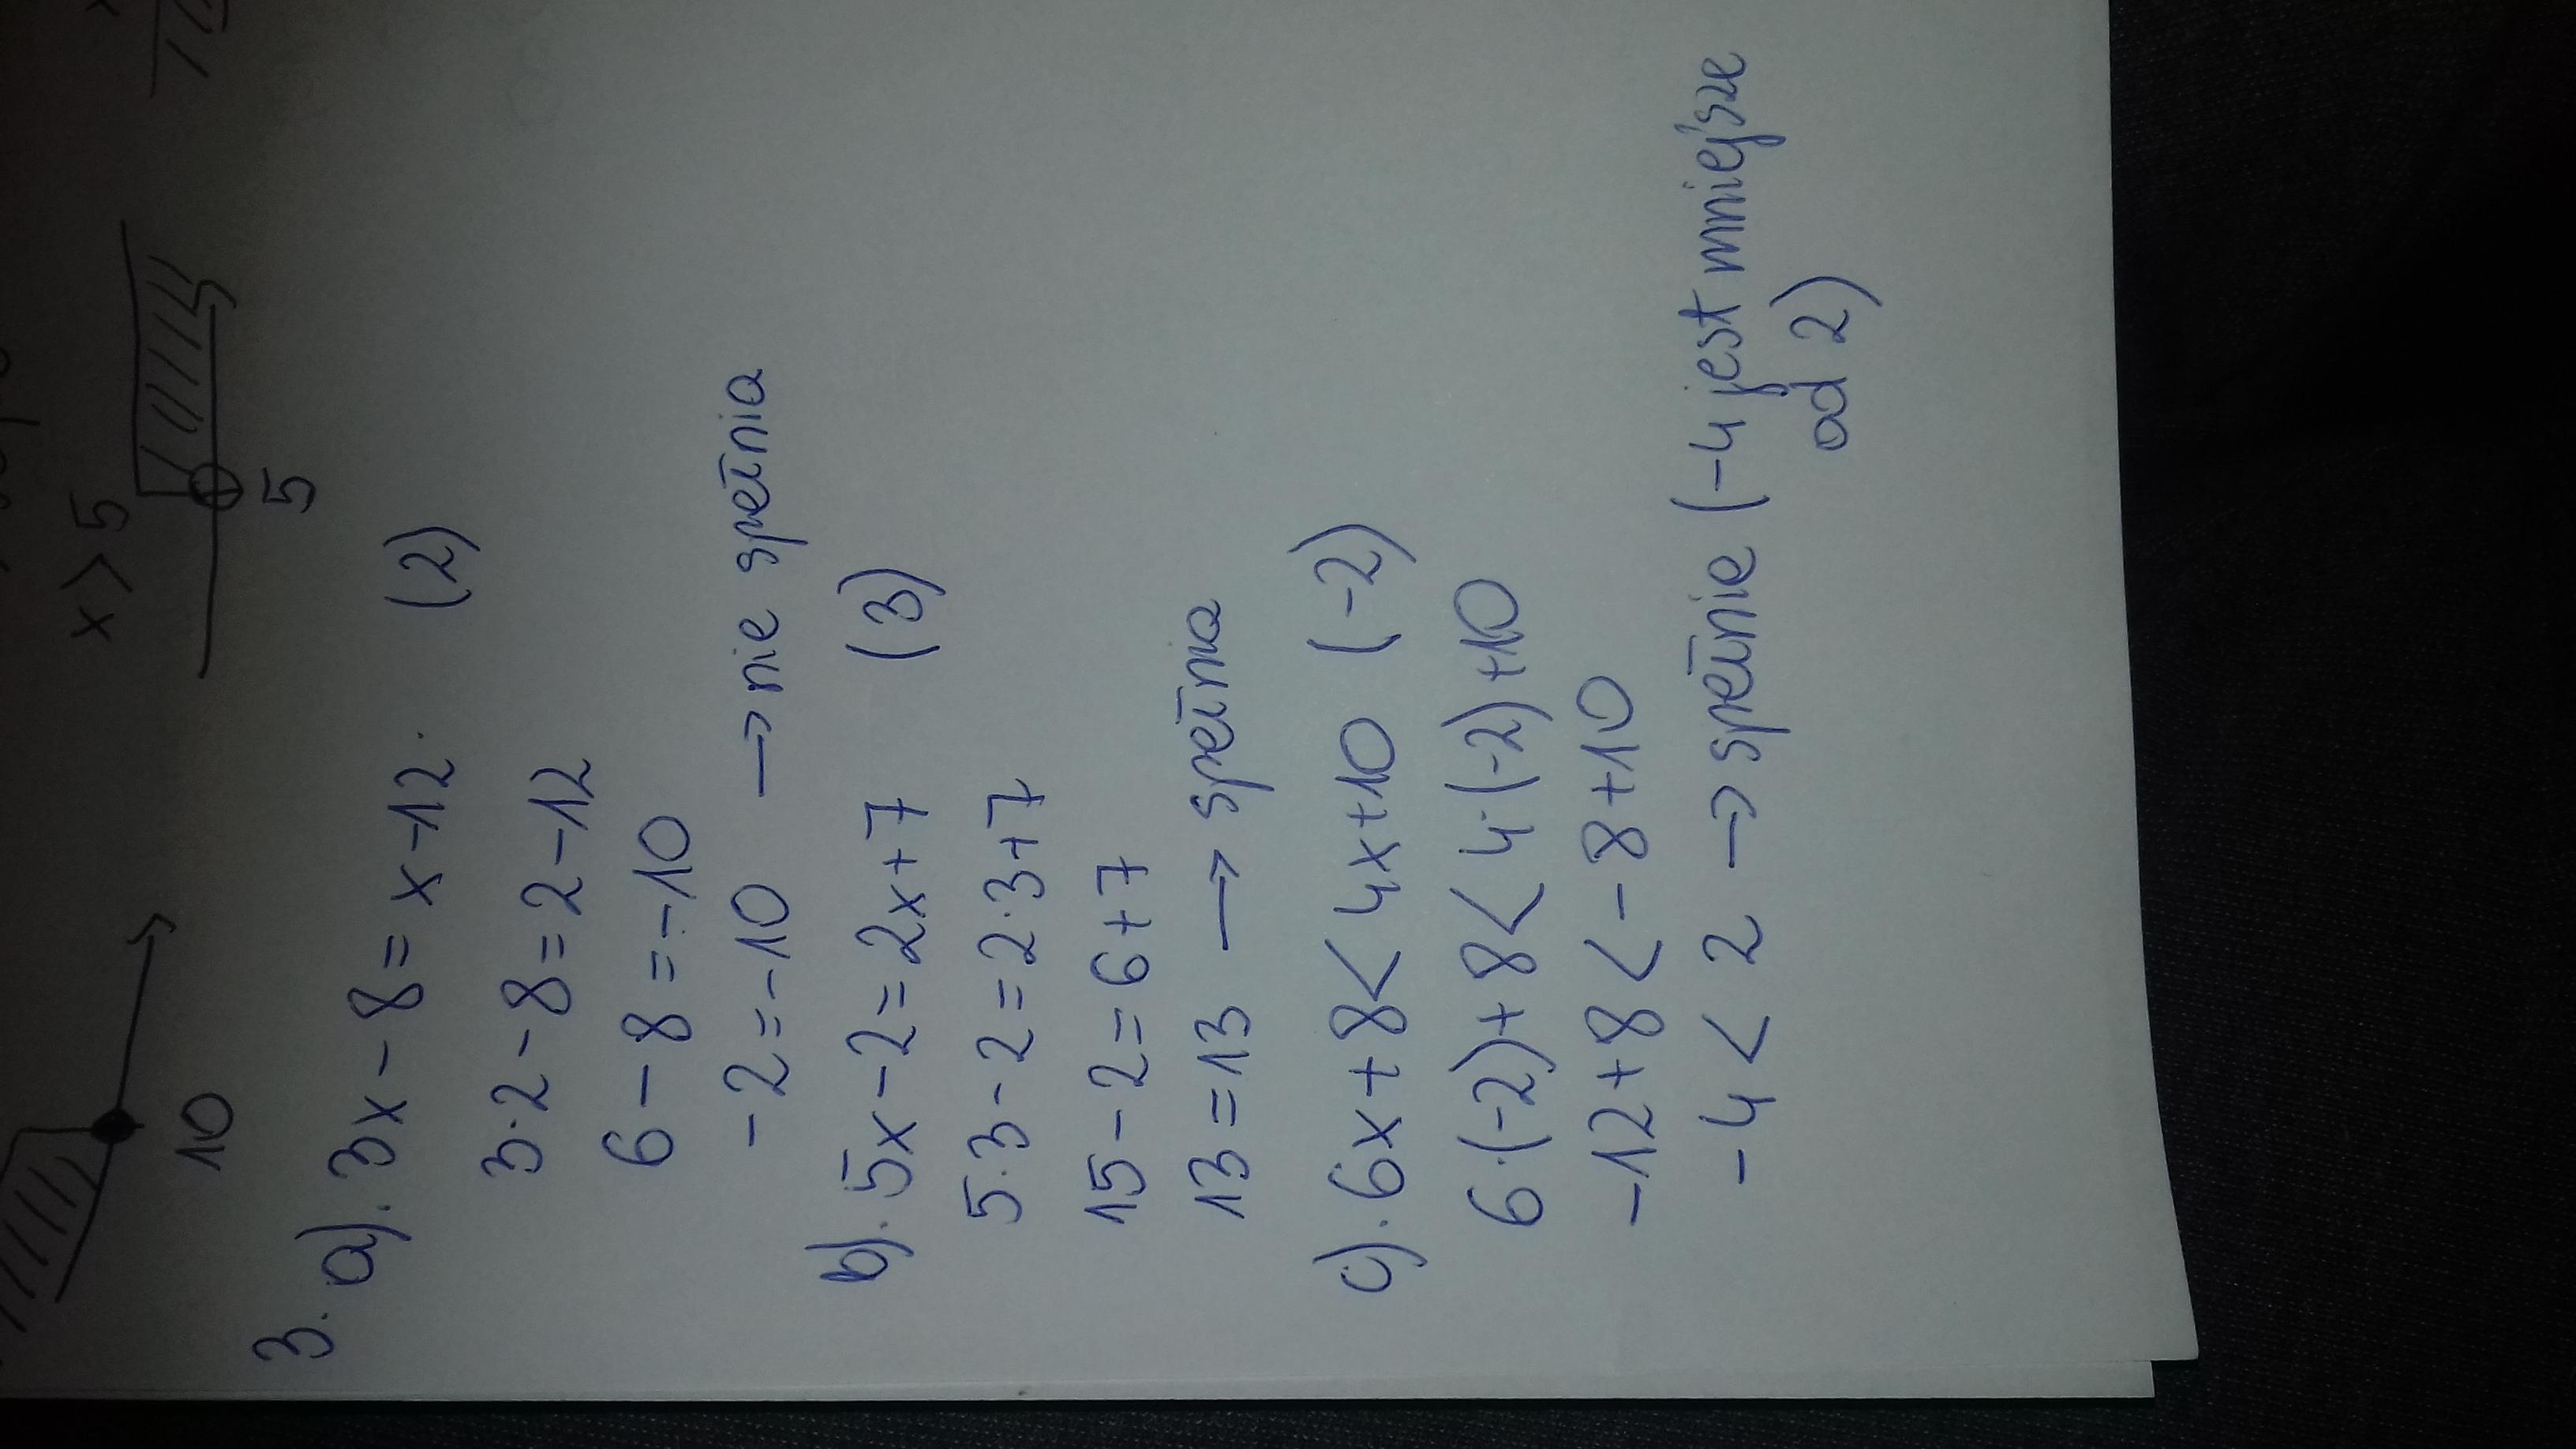 x > 5
5
10
3. a). 3x - 8 = x - 12 (2)
3·2 - 8 = 2 - 12
6 - 8 = -10
-2 = -10 → nie spełnia
b). 5x - 2 = 2x + 7 (3)
5·3 - 2 = 2·3 + 7
15 - 2 = 6 + 7
13 = 13 → spełnia
c). 6x + 8 < 4x + 10 (-2)
6·(-2) + 8 < 4·(-2) + 10
-12 + 8 < -8 + 10
-4 < 2 → spełnie (-4 jest mniejsze
od 2)